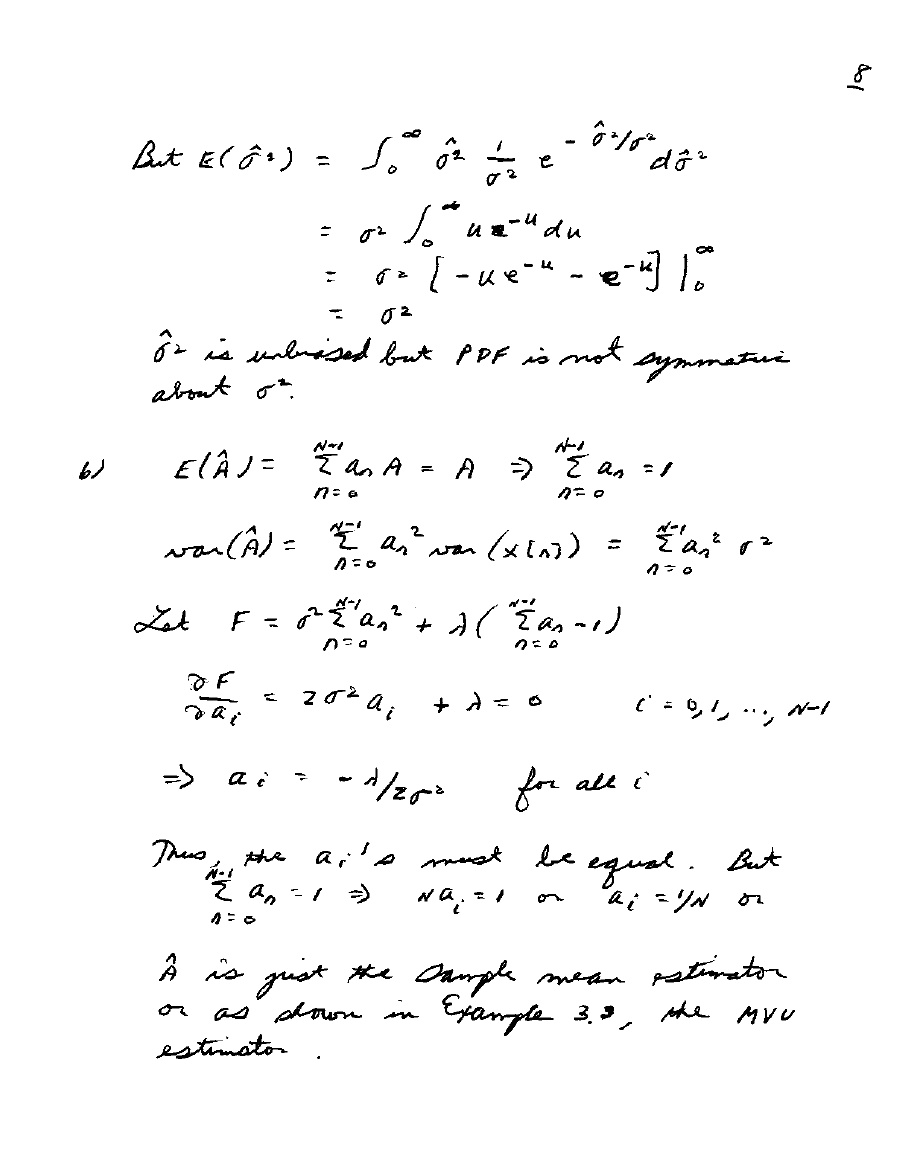 8
But E(σ̂²) = ∫₀^∞ σ̂² 1/σ² e^(-σ̂²/σ²) dσ̂²
= σ² ∫₀^∞ u e^(-u) du
= σ² [-u e^(-u) - e^(-u)] |₀^∞
= σ²
σ̂² is unbiased but PDF is not symmetric
about σ².
6) E(Â) = Σ_{n=0}^{N-1} aₙ A = A ⇒ Σ_{n=0}^{N-1} aₙ = 1
var(Â) = Σ_{n=0}^{N-1} aₙ² var(x[n]) = Σ_{n=0}^{N-1} aₙ² σ²
Let F = σ² Σ_{n=0}^{N-1} aₙ² + λ( Σ_{n=0}^{N-1} aₙ - 1)
∂F/∂aᵢ = 2σ² aᵢ + λ = 0 i = 0, 1, ..., N-1
⇒ aᵢ = -λ/2σ² for all i
Thus, the aᵢ's must be equal. But
Σ_{n=0}^{N-1} aₙ = 1 ⇒ N aᵢ = 1 or aᵢ = 1/N or
Â is just the sample mean estimator
or as shown in Example 3.3, the MVU
estimator.